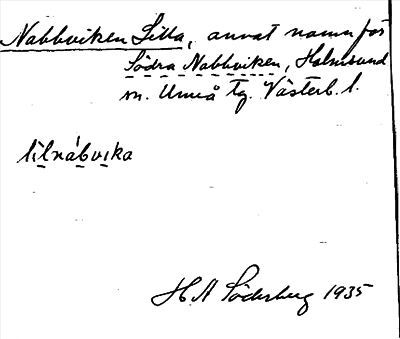 Nabbviken Lilla, annat namn för
Södra Nabbviken, Holmsund
sn. Umeå tg. Västerb. l.
lilnábvika
H A Söderberg 1935